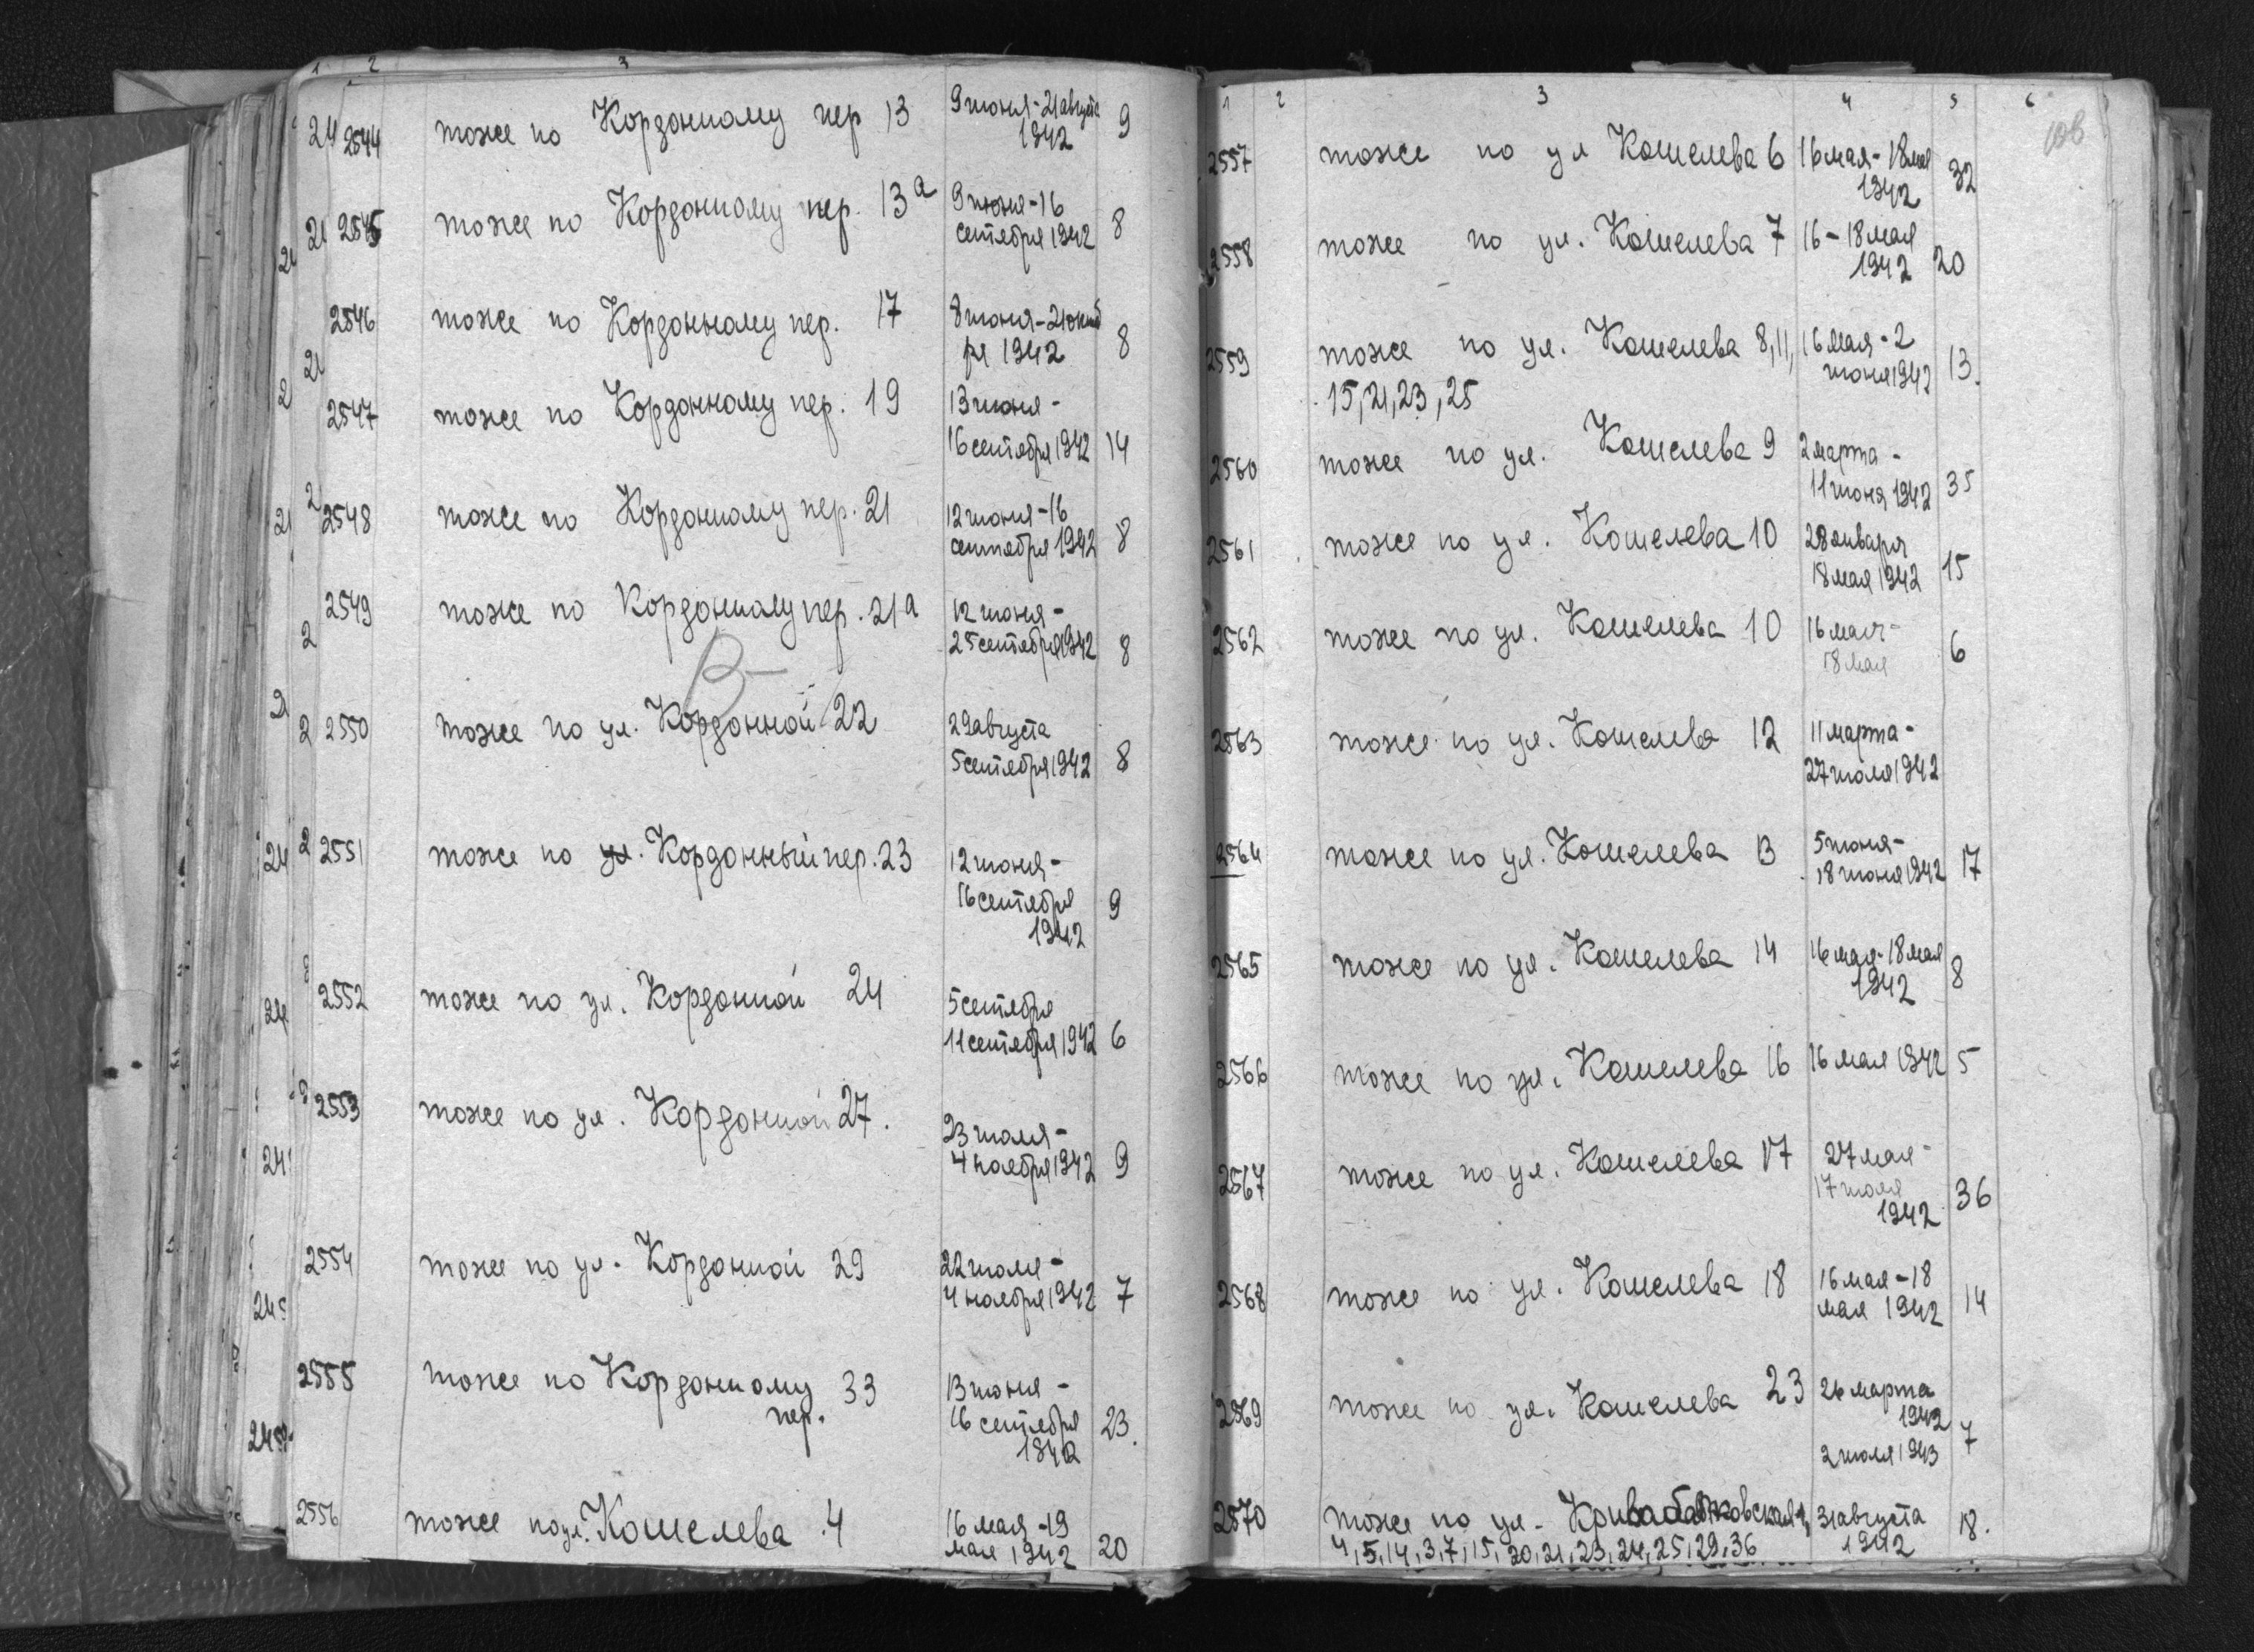 1 2 3
2544 тоже по Кордонному пер 13 9 июня-21 августа 9
1942
2545 тоже по Кордонному пер. 13а 9 июня-16 8
сентября 1942
2546 тоже по Кордонному пер. 17 8 июня-21 октяб 8
ря 1942
2547 тоже по Кордонному пер. 19 13 июня-
16 сентября 1942 14
2548 тоже по Кордонному пер. 21 12 июня-16
сентября 1942 8
2549 тоже по Кордонному пер. 21а 12 июня-
25 сентября 1942 8
2550 тоже по ул. Кордонной 22 29 августа
5 сентября 1942 8
2551 тоже по ул. Кордонный пер. 23 12 июня-
16 сентября 9
1942
2552 тоже по ул. Кордонной 24 5 сентября
11 сентября 1942 6
2553 тоже по ул. Кордонной 27. 23 июля-
4 ноября 1942 9
2554 тоже по ул. Кордонной 29 22 июля-
4 ноября 1942 7
2555 тоже по Кордонному 33 13 июня-
пер. 16 сентября 23.
1942
2556 тоже по ул. Кошелева 4 16 мая-19
мая 1942 20
1 2 3 4 5 6
2557 тоже по ул Кошелева 6 16 мая-18 мая 32
1942
2558 тоже по ул. Кошелева 7 16-18 мая
1942 20
2559 тоже по ул. Кошелева 8, 11, 16 мая-2
июня 1942 13.
15, 21, 23, 25
2560 тоже по ул. Кошелева 9 2 марта-
11 июня 1942 35
2561 тоже по ул. Кошелева 10 28 января
18 мая 1942 15
2562 тоже по ул. Кошелева 10 16 мая-
18 мая 6
2563 тоже по ул. Кошелева 12 11 марта-
27 июля 1942
2564 тоже по ул. Кошелева 13 5 июня-
18 июня 1942 17
2565 тоже по ул. Кошелева 14 16 мая-18 мая
1942 8
2566 тоже по ул. Кошелева 16 16 мая 1942 5
2567 тоже по ул. Кошелева 17 27 мая-
17 июля 36
1942
2568 тоже по ул. Кошелева 18 16 мая-18
мая 1942 14
2569 тоже по ул. Кошелева 23 26 марта
1942
2 июля 1943 7
2570 тоже по ул- 31 августа
4, 5, 14, 3, 7, 15, 20, 21, 23, 24, 25, 29, 36 1942 18.